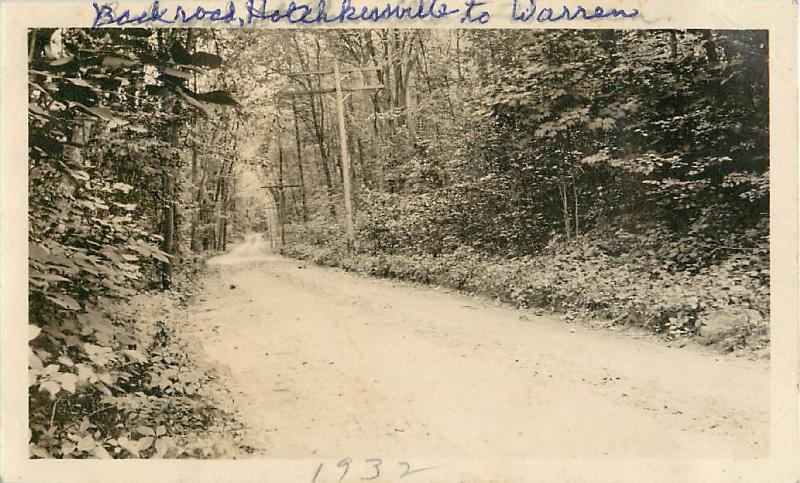 Back road, Hotchkissville to Warren
1932